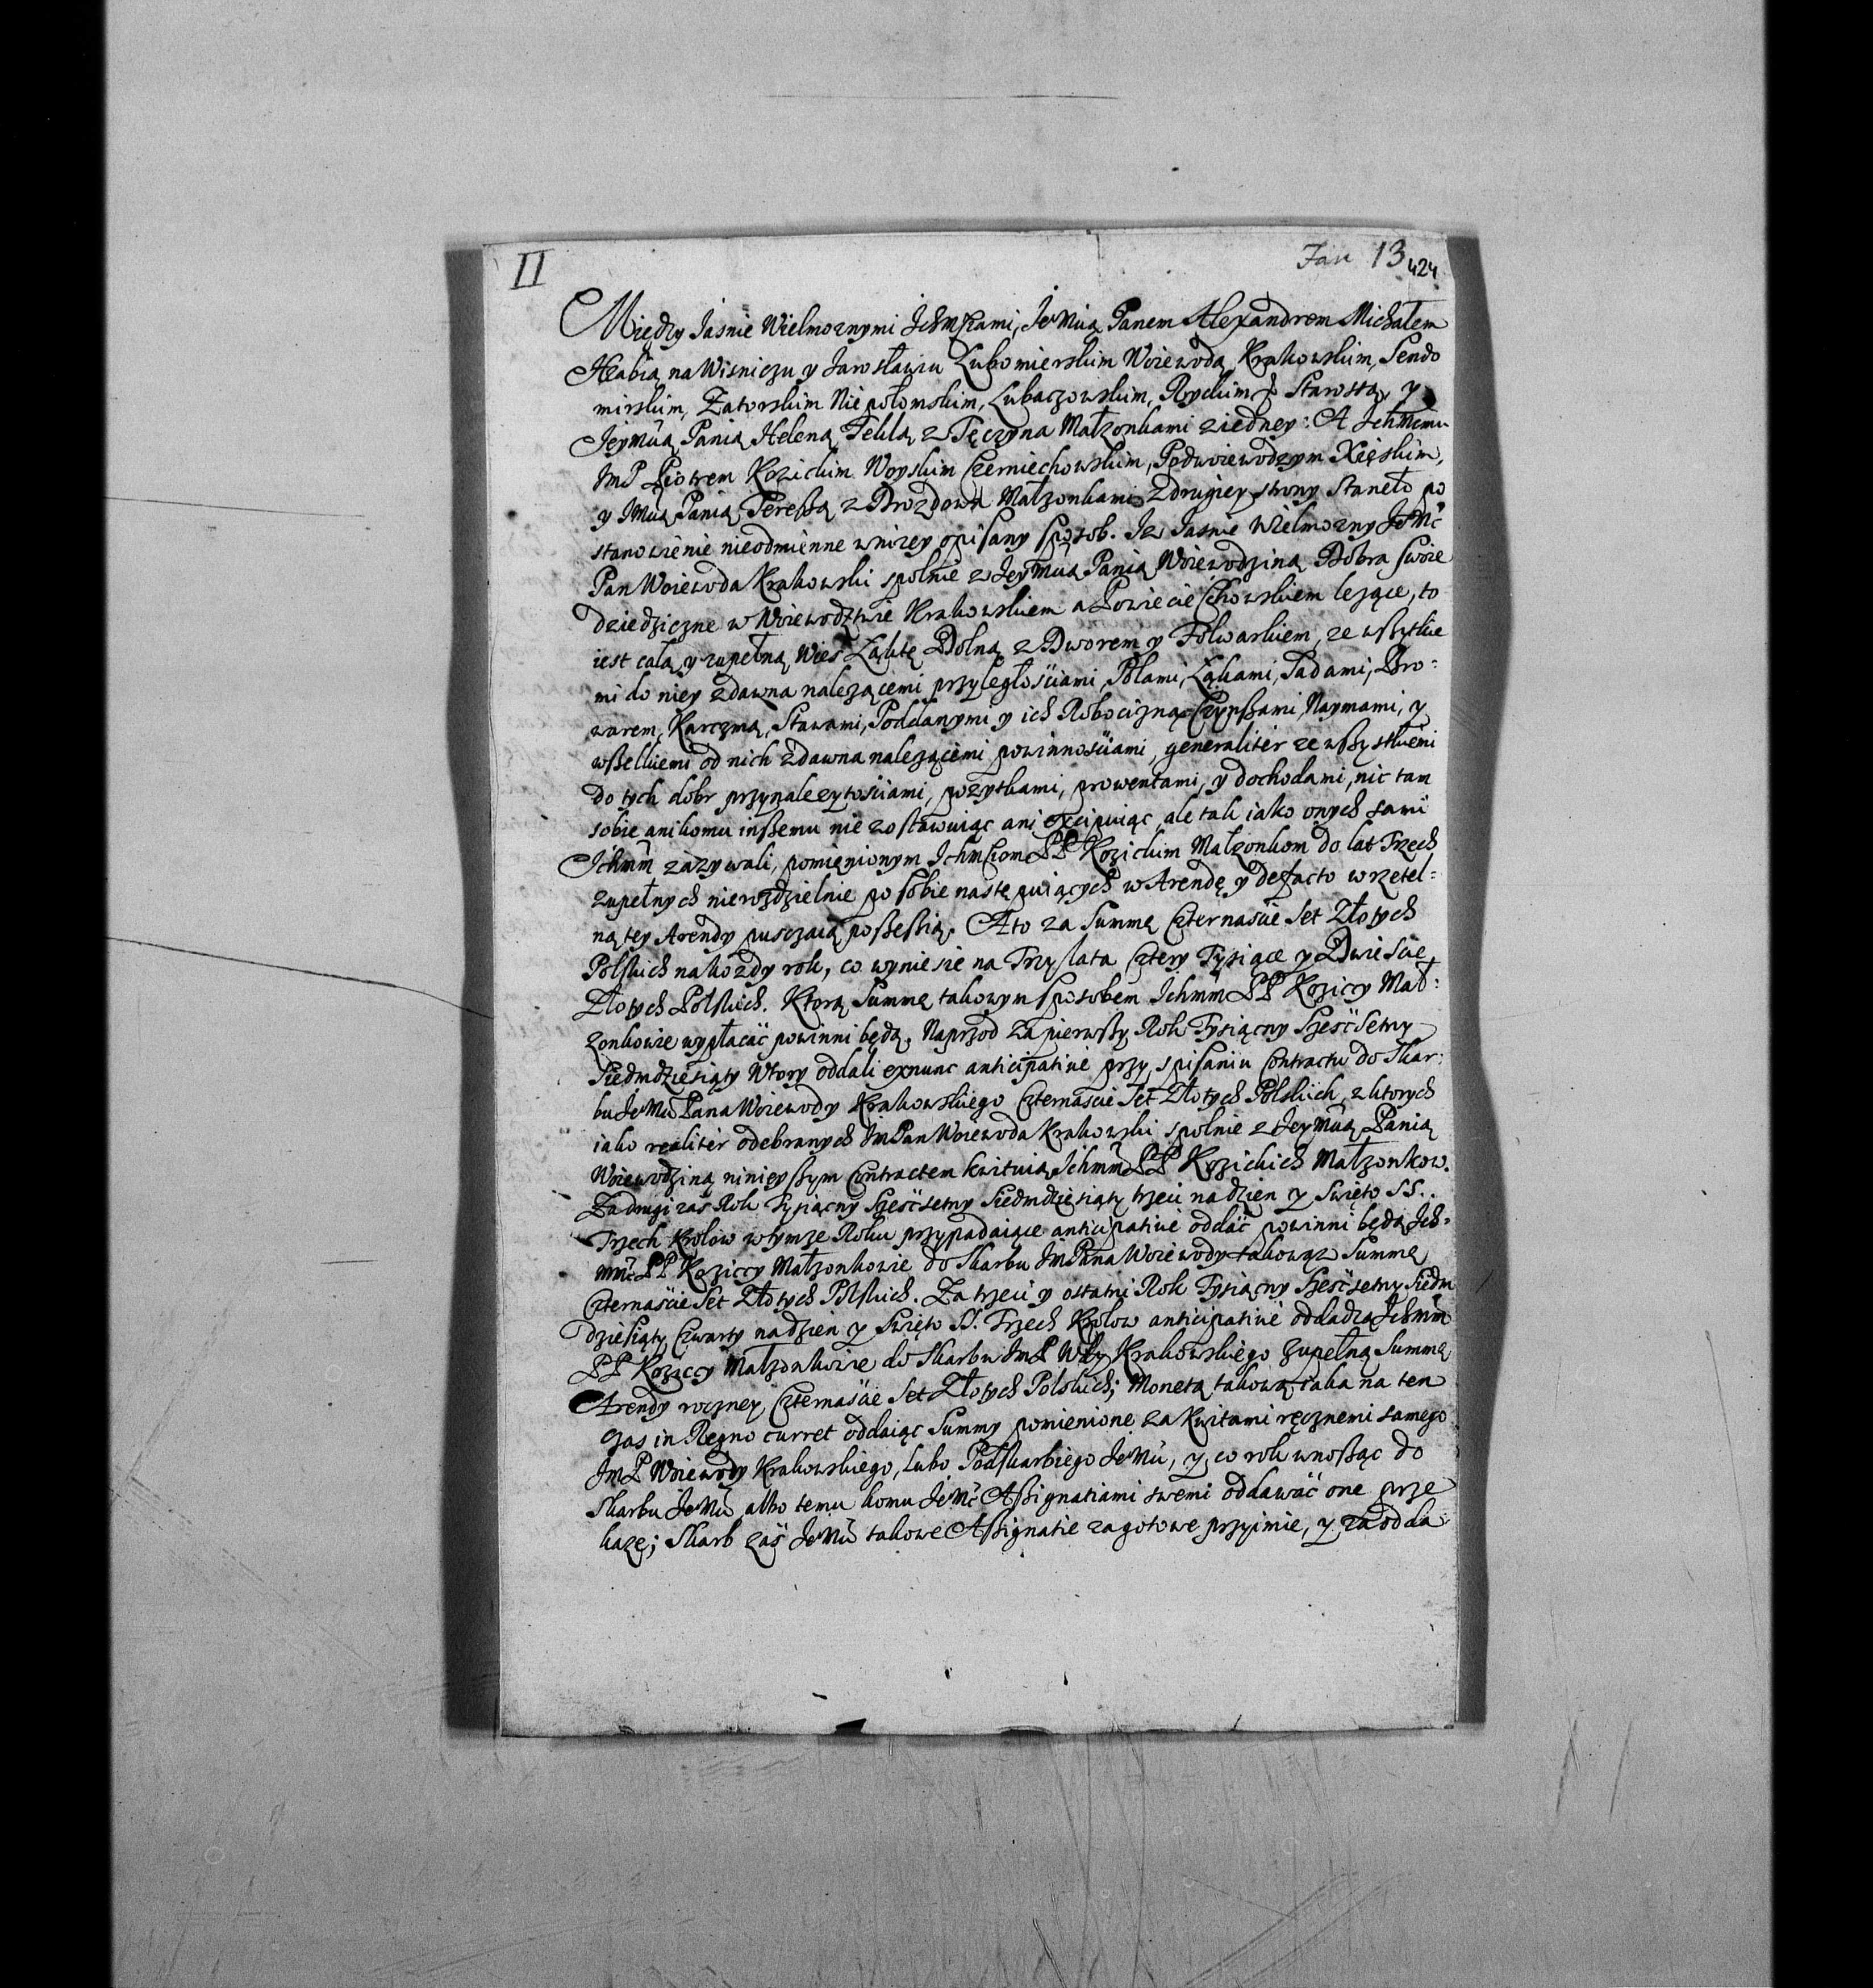 II
Jan 13 424
Między Jasnie Wielmoznymi Ichmściami, JeMcią Panem Alexandrem Michałem
Hrabią na Wisniczu y Jarosławiu Lubomierskim Woiewodą Krakowskim, Sendo
mirskim, Zatorskim Niepołomskim, Lubaczowskim, Ryckim & Starostą, y
Jeymcią Panią Heleną Teklą z Tęczyna Małzonkami z iedney: A Ichmciami
JmP Piotrem Kozickim Woyskim Czerniechowskim, Podwoiewodzym Xięskim,
y Jmcią Panią Teressą z Drozdowa Małzonkami z drugiey strony Staneło po
stanowienie nieodmienne w nizey opisany sposob. Iz Jasnie Wielmozny JeMć
Pan Woiewoda Krakowski spolnie z Jeymcią Panią Woiewodziną Dobra swoie
dziedziczne w Woiewodztwie Krakowskiem a Powiecie lezące, to
iest całą y zupełną Wies Łąktę Dolną z Dworem y Folwarkiem, ze wszytkie
mi do niey zdawna nalezącemi przyległościami, Polami, Łąkami, Sadami, Bro:
warem, Karczmą, Stawami, Poddanymi y ich Robocizną Czynszami, Naymami, y
wszelkiemi od nich zdawna nalezącemi powinnościami, generaliter ze wszystkiemi
do tych dobr przynalezytościami, pozytkami, prowentami, y dochodami, nic tam
sobie ani komu inszemu nie zostawuiąc ani excipuiąc, ale tak iako onych sami
Ichmm zazywali, pomienionym Ichmciom PP Kozickim Małzonkom do lat Trzech
zupełnych nierozdzielnie po sobie nastepuiących w Arendę y de facto w rzetel:
ną tey Arendy puszczaią possessią. A to za Summę Czternascie Set Złotych
Polskich na kozdy rok, co wyniesie na Trzy lata Cztery Tysiące y Dwiescie
Złotych Polskich. Ktorą Summę takowym sposobem Ichmm PP Koziccy Mał:
zonkowie wypłacać powinni będą. Naprzod za pierwszy Rok Tysiączny Szesć Setny
Siedmdziesiąty Wtory oddali exnunc anticipative przy spisaniu Contractu do Skar:
bu JeMci Pana Woiewody Krakowskiego Czternascie Set Złotych Polskich, z ktorych
iako realiter odebranych JmPan Woiewoda Krakowski spolnie z Jeymcią Panią
Woiewodziną ninieyszym Contractem kwituią Ichmm PP Kozickich Małzonkow.
Za drugi zas Rok Tysiączny Szesćsetny Siedmdziesiąty trzeci na dzien y Swięto SS.
Trzech Krolow w tymze Roku przypadaiące anticipative oddać powinni będą Ich:
mmć PP Koziccy Małzonkowie do Skarbu JmPana Woiewody takowąz Summę
Czternascie Set Złotych Polskich. Za trzeci y ostatni Rok Tysiączny Szesćsetny Siedm
dziesiąty Czwarty na dzien y Swięto SS. Trzech Krolow anticipative oddadzą Ichmm
PP Koziccy Małzonkowie do Skarbu JmP Wdy Krakowskiego zupełną Summę
Arendy roczney Czternascie Set Złotych Polskich; Monetą takową iaka na ten
czas in Regno curret oddaiąc Summy pomienione za kwitami ręcznemi samego
JmP Woiewody Krakowskiego, lubo Podskarbiego JeMci, y co rok wnosząc do
Skarbu JeMci albo temu komu JeMć Assignatiami swemi oddawać one prze
kaze; Skarb zaś JeMci takowe Assignatie za gotowe przyimie, y za odda